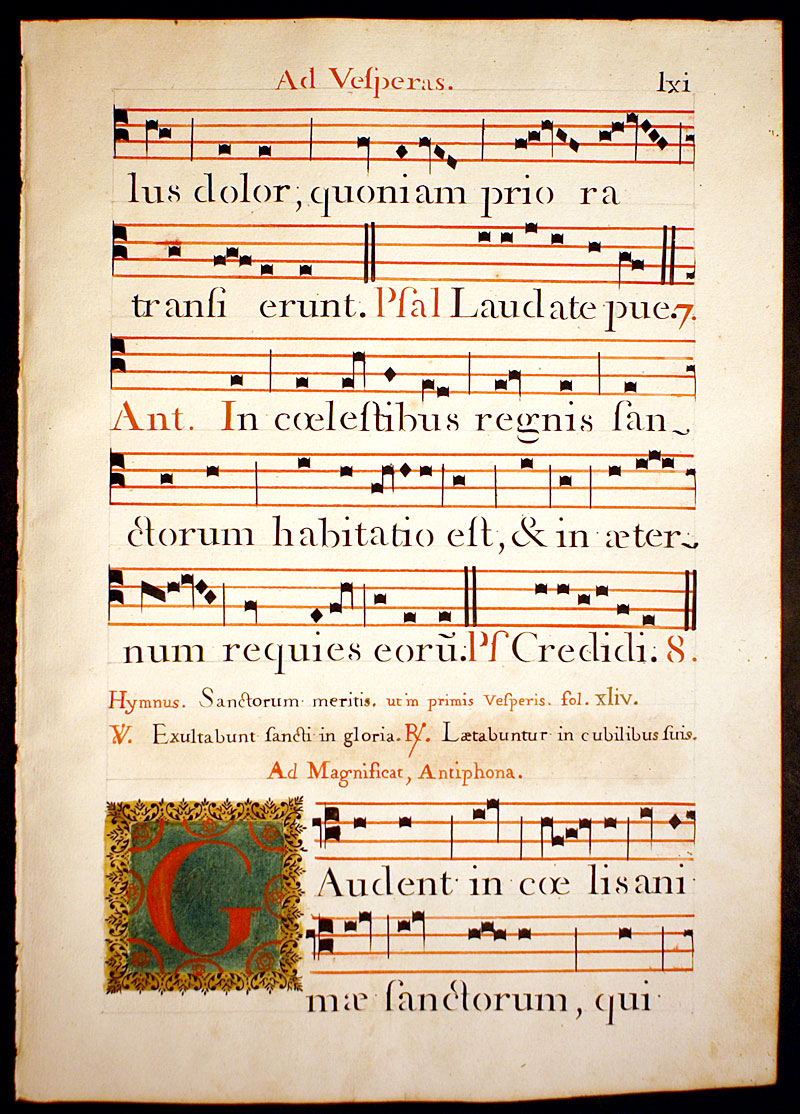 Ad Veſperas. lxi
lus dolor, quoniam prio ra
tranſi erunt. Pſal Laudate pue. 7.
Ant. In cœleſtibus regnis ſan~
ctorum habitatio eſt, & in æter~
num requies eorũ. Pſ Credidi. 8.
Hymnus. Sanctorum meritis. ut in primis Veſperis. fol. xliv.
℣. Exultabunt ſancti in gloria. ℟. Lætabuntur in cubilibus ſuis.
Ad Magnificat, Antiphona.
GAudent in cœ lis ani
mæ ſanctorum, qui